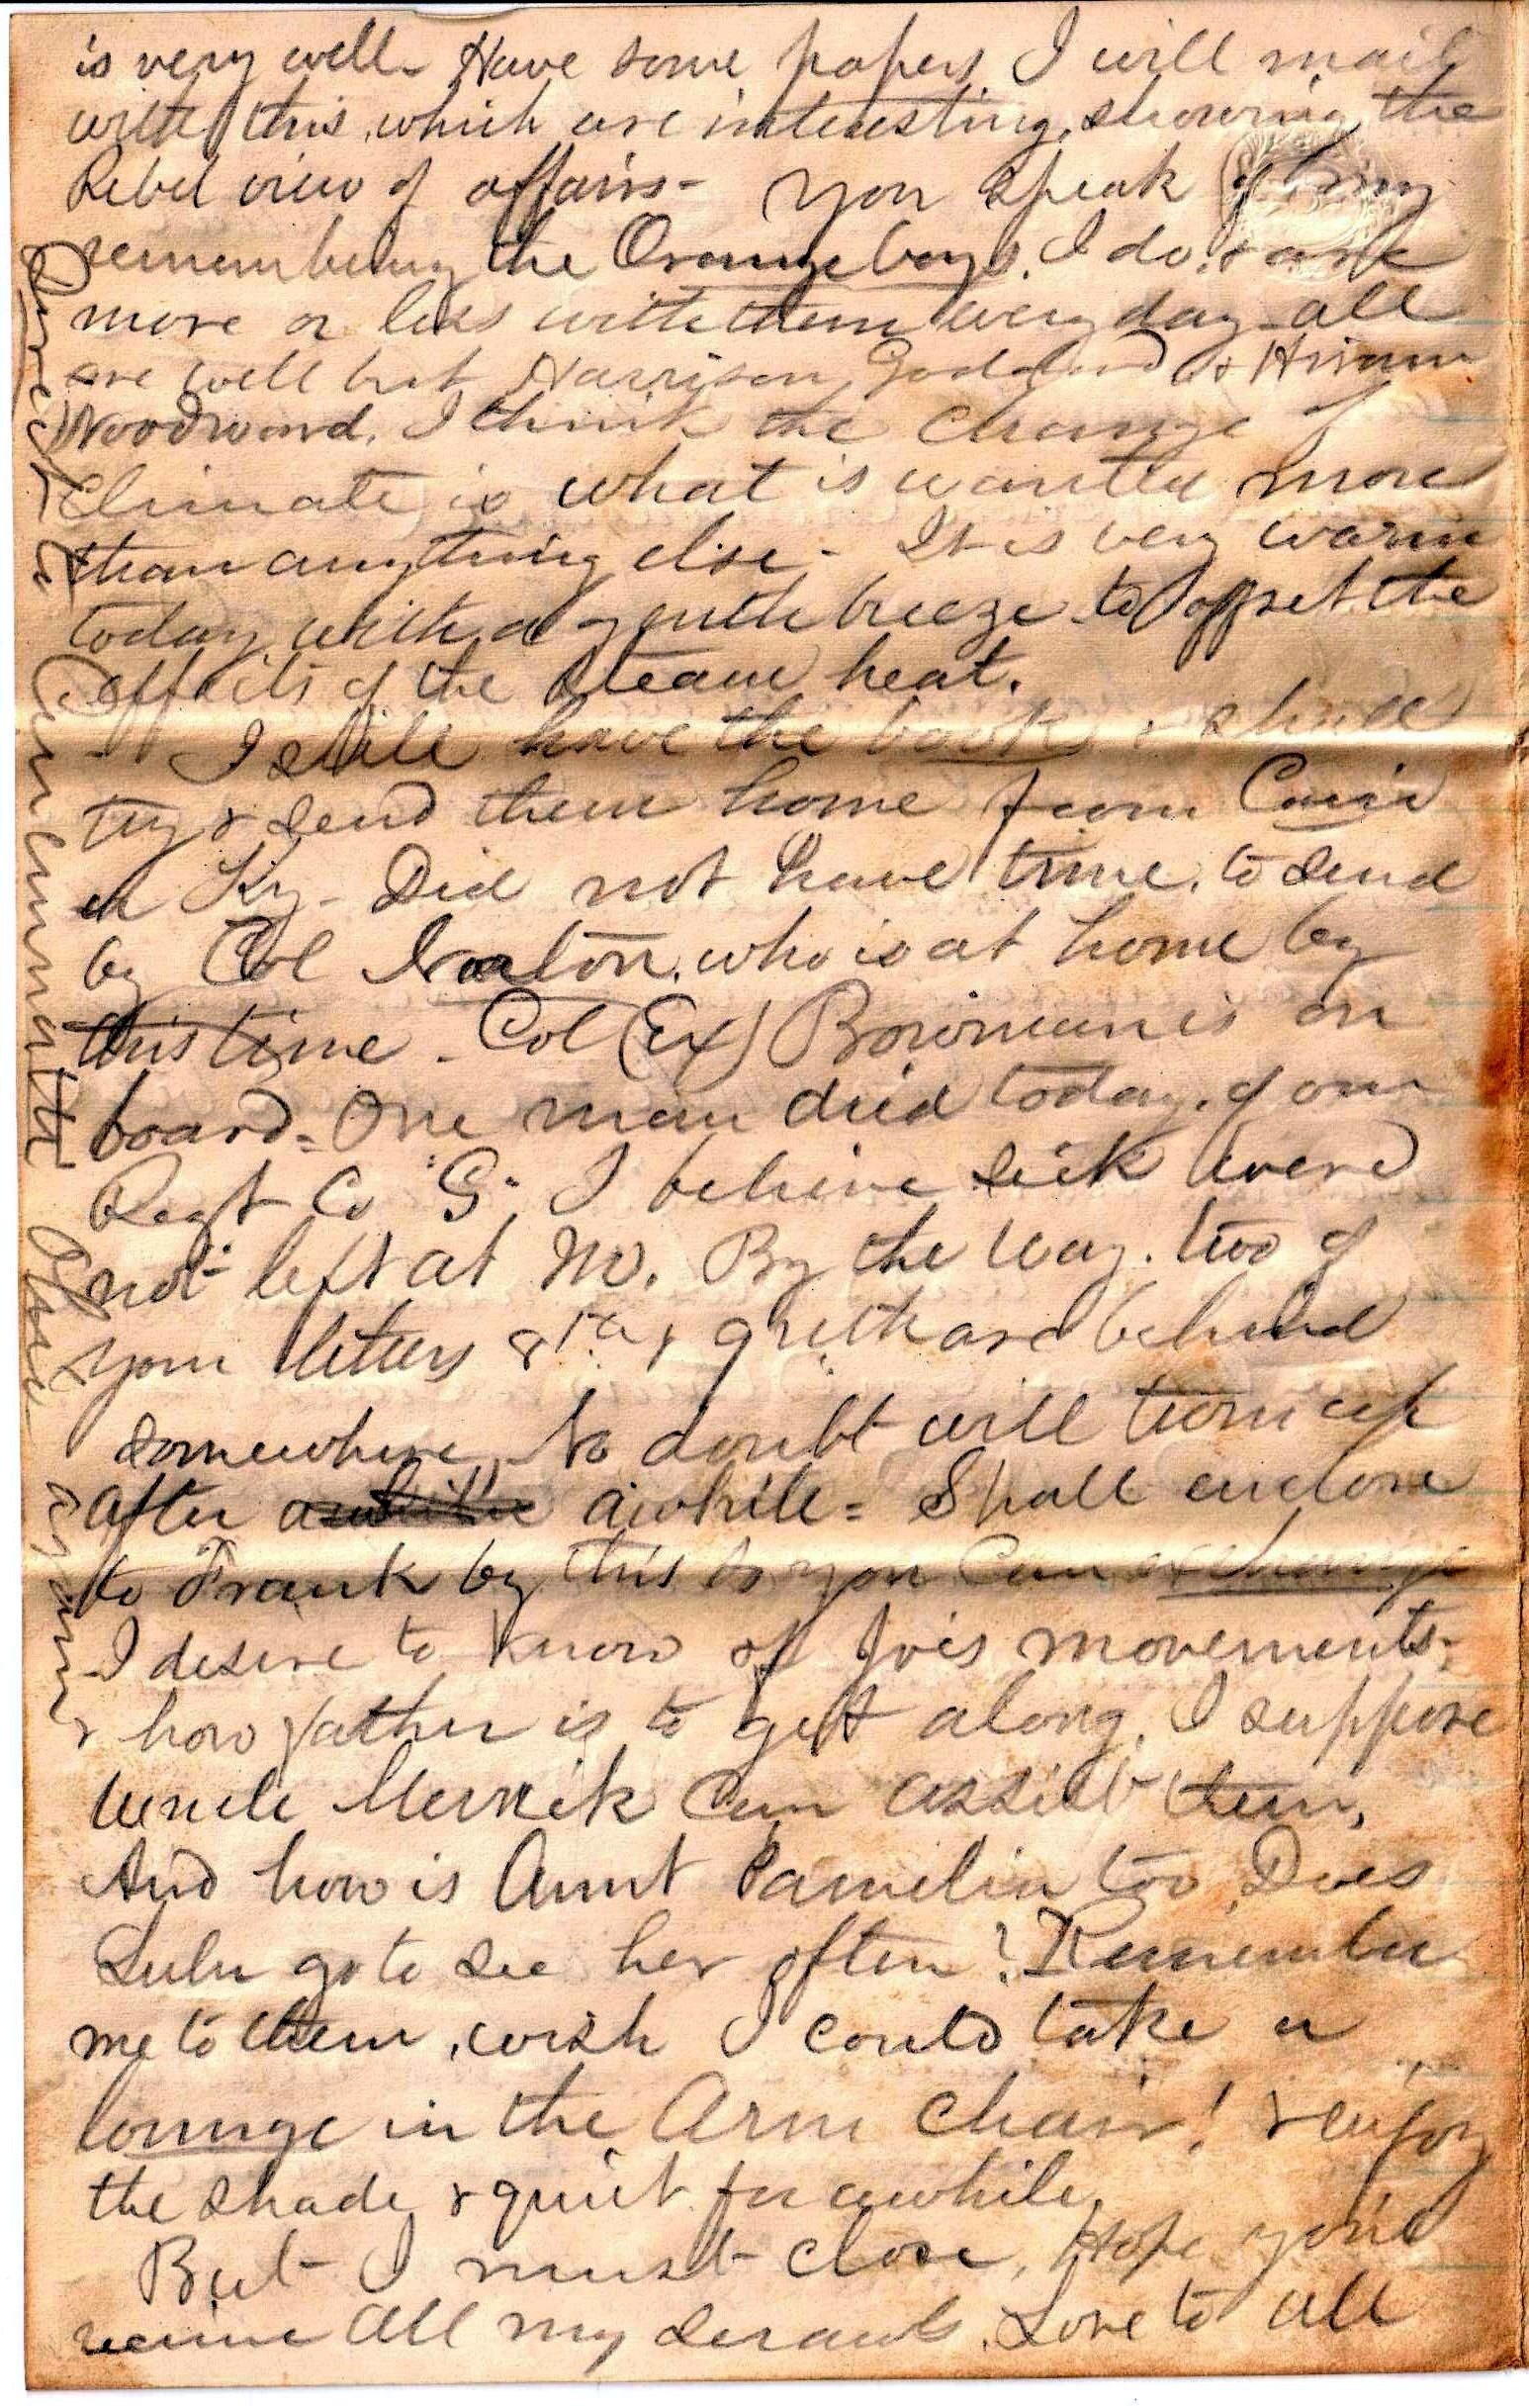 is very well - Have some papers I will mail
with this, which are interesting, showing the
Rebel view of affairs - You speak of my
remembering the Orange boys. I do, & am
more or less with them every day - all
are well but Harrison Goddard & Hiram
Woodward. I think the change of
climate is what is wanted more
than anything else - It is very warm
today with a gentle breeze to offset the
effects of the steam heat.
I still have the book & shall
try & send them home from Cairo
or Ky - Did not have time, to send
by Col who is at home by
this time - Col (Ex) Bowman is on
board - One man died today, of our
Regt Co "G" I believe sick were
not left at M. By the way. two of
your letters 8th & 9th are behind
somewhere No doubt will turn up
after awhile awhile - Shall enclose
to Frank by this so you can exchange
I desire to know of Joe's movements -
& how father is to get along. I suppose
Uncle Merrick can assist them,
And how is Aunt Pamelia too Does
Lulu go to see her often? Remember
me to them, wish I could take a
lounge in the Arm Chair! & enjoy
the shade & quiet for awhile.
But I must close, Hope you'll
receive all my scrawls. Love to all
Direct to Cincinnatti Ohio again